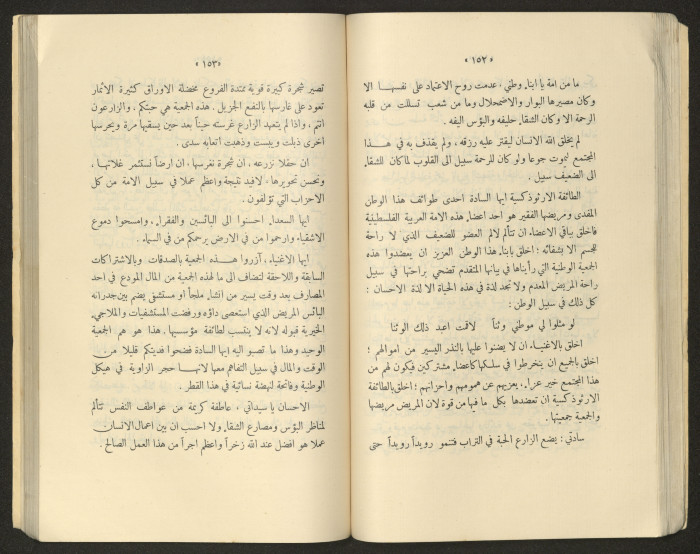 «١٥٢»
ما من امة يا ابناء وطني ، عدمت روح الاعتماد على نفسها الا
وكان مصيرها البوار والاضمحلال وما من شعب تسللت من قلبه
الرحمة الا وكان الشقاء حليفه والبؤس اليفه .
لم يخلق الله الانسان ليقتر عليه رزقه ، ولم يقذف به في هذا
المجتمع ليموت جوعا ولو كان للرحمة سبيل الى القلوب لما كان للشقاء
الى الضعيف سبيل .
الطائفة الارثوذكسية ايها السادة احدى طوائف هذا الوطن
المفدى ومريضها الفقير هو احد اعضاء هذه الامة العربية الفلسطينية
فاخلق بباقي الاعضاء ان تتألم لالم العضو للضعيف الذي لا راحة
للجسم الا بشفائه ؛ اخلق بابناء هذا الوطن العزيز ان يعضدوا هذه
الجمعية الوطنية التي رأيناها في بيانها المتقدم تضحي براحتها في سبيل
راحة المريض المعدم ولا تجد لذة في هذه الحياة الا لذة الاحسان ؛
كل ذلك في سبيل الوطن :
لو مثلوا لي موطني وثناً لاقت اعبد ذلك الوثنا
اخلق بالاغنياء ان لا يضنوا عليها بالنذر اليسير من اموالهم ؛
اخلق بالجميع ان ينخرطوا في سلكها كاعضاء مشتركين فيكون لهم من
هذا المجتمع خير عزاء ، يعزيهم عن همومهم واحزانهم ؛ اخلق بالطائفة
الارثوذكسية ان تعضدها بكل ما فيها من قوة لان المريض مريضها
والجمعية جمعيتها .
سادتي : يضع الزارع الحبة في التراب فتنمو رويداً رويداً حتى
«١٥٣»
تصير شجرة كبيرة قوية ممتدة الفروع مخضلة الاوراق كثيرة الاثمار
تعود على غارسها بالنفع الجزيل . هذه الجمعية هي حبتكم ، والزارعون
انتم ، واذا لم يتعهد الزارع غرسته حيناً بعد حين يسقيها مرة ويحرسها
اخرى ذبلت ويبست وذهبت اتعابه سدى .
ان حقلا نزرعه ، ان شجرة نغرسها ، ان ارضاً نستثمر غلاتها ،
ونحسن تحويرها ، لافيد نتيجة واعظم عملا في سبيل الامة من كل
الاحزاب التي تؤلفون .
ايها السعداء . احسنوا الى البائسين والفقراء . وامسحوا دموع
الاشقياء وارحموا من في الارض يرحمكم من في السماء .
ايها الاغنياء ، آزروا هذه الجمعية بالصدقات وبالاشتراكات
السابقة واللاحقة لتضاف الى ما لهذه الجمعية من المال المودع في احد
المصارف بعد وقت يسير من انشاء ملجأ او مستشفى يضم بين جدرانه
البائس المريض الذي استعصى داؤه ورفضت المستشفيات والملاجيء
الخيرية قبوله لانه لا ينتسب لطائفة مؤسسيها . هذا هو هم الجمعية
الوحيد وهذا ما تصبو اليه ايها السادة فضحوا فديتكم قليلا من
الوقت والمال في سبيل التفاهم معها لانها حجر الزاوية في هيكل
الوطنية وفاتحة لنهضة نسائية في هذا القطر .
الاحسان يا سيداتي ، عاطفة كريمة من عواطف النفس تتألم
لمناظر البؤس ومصارع الشقاء ولا احسب ان بين اعمال الانسان
عملا هو افضل عند الله زخراً واعظم اجراً من هذا العمل الصالح .